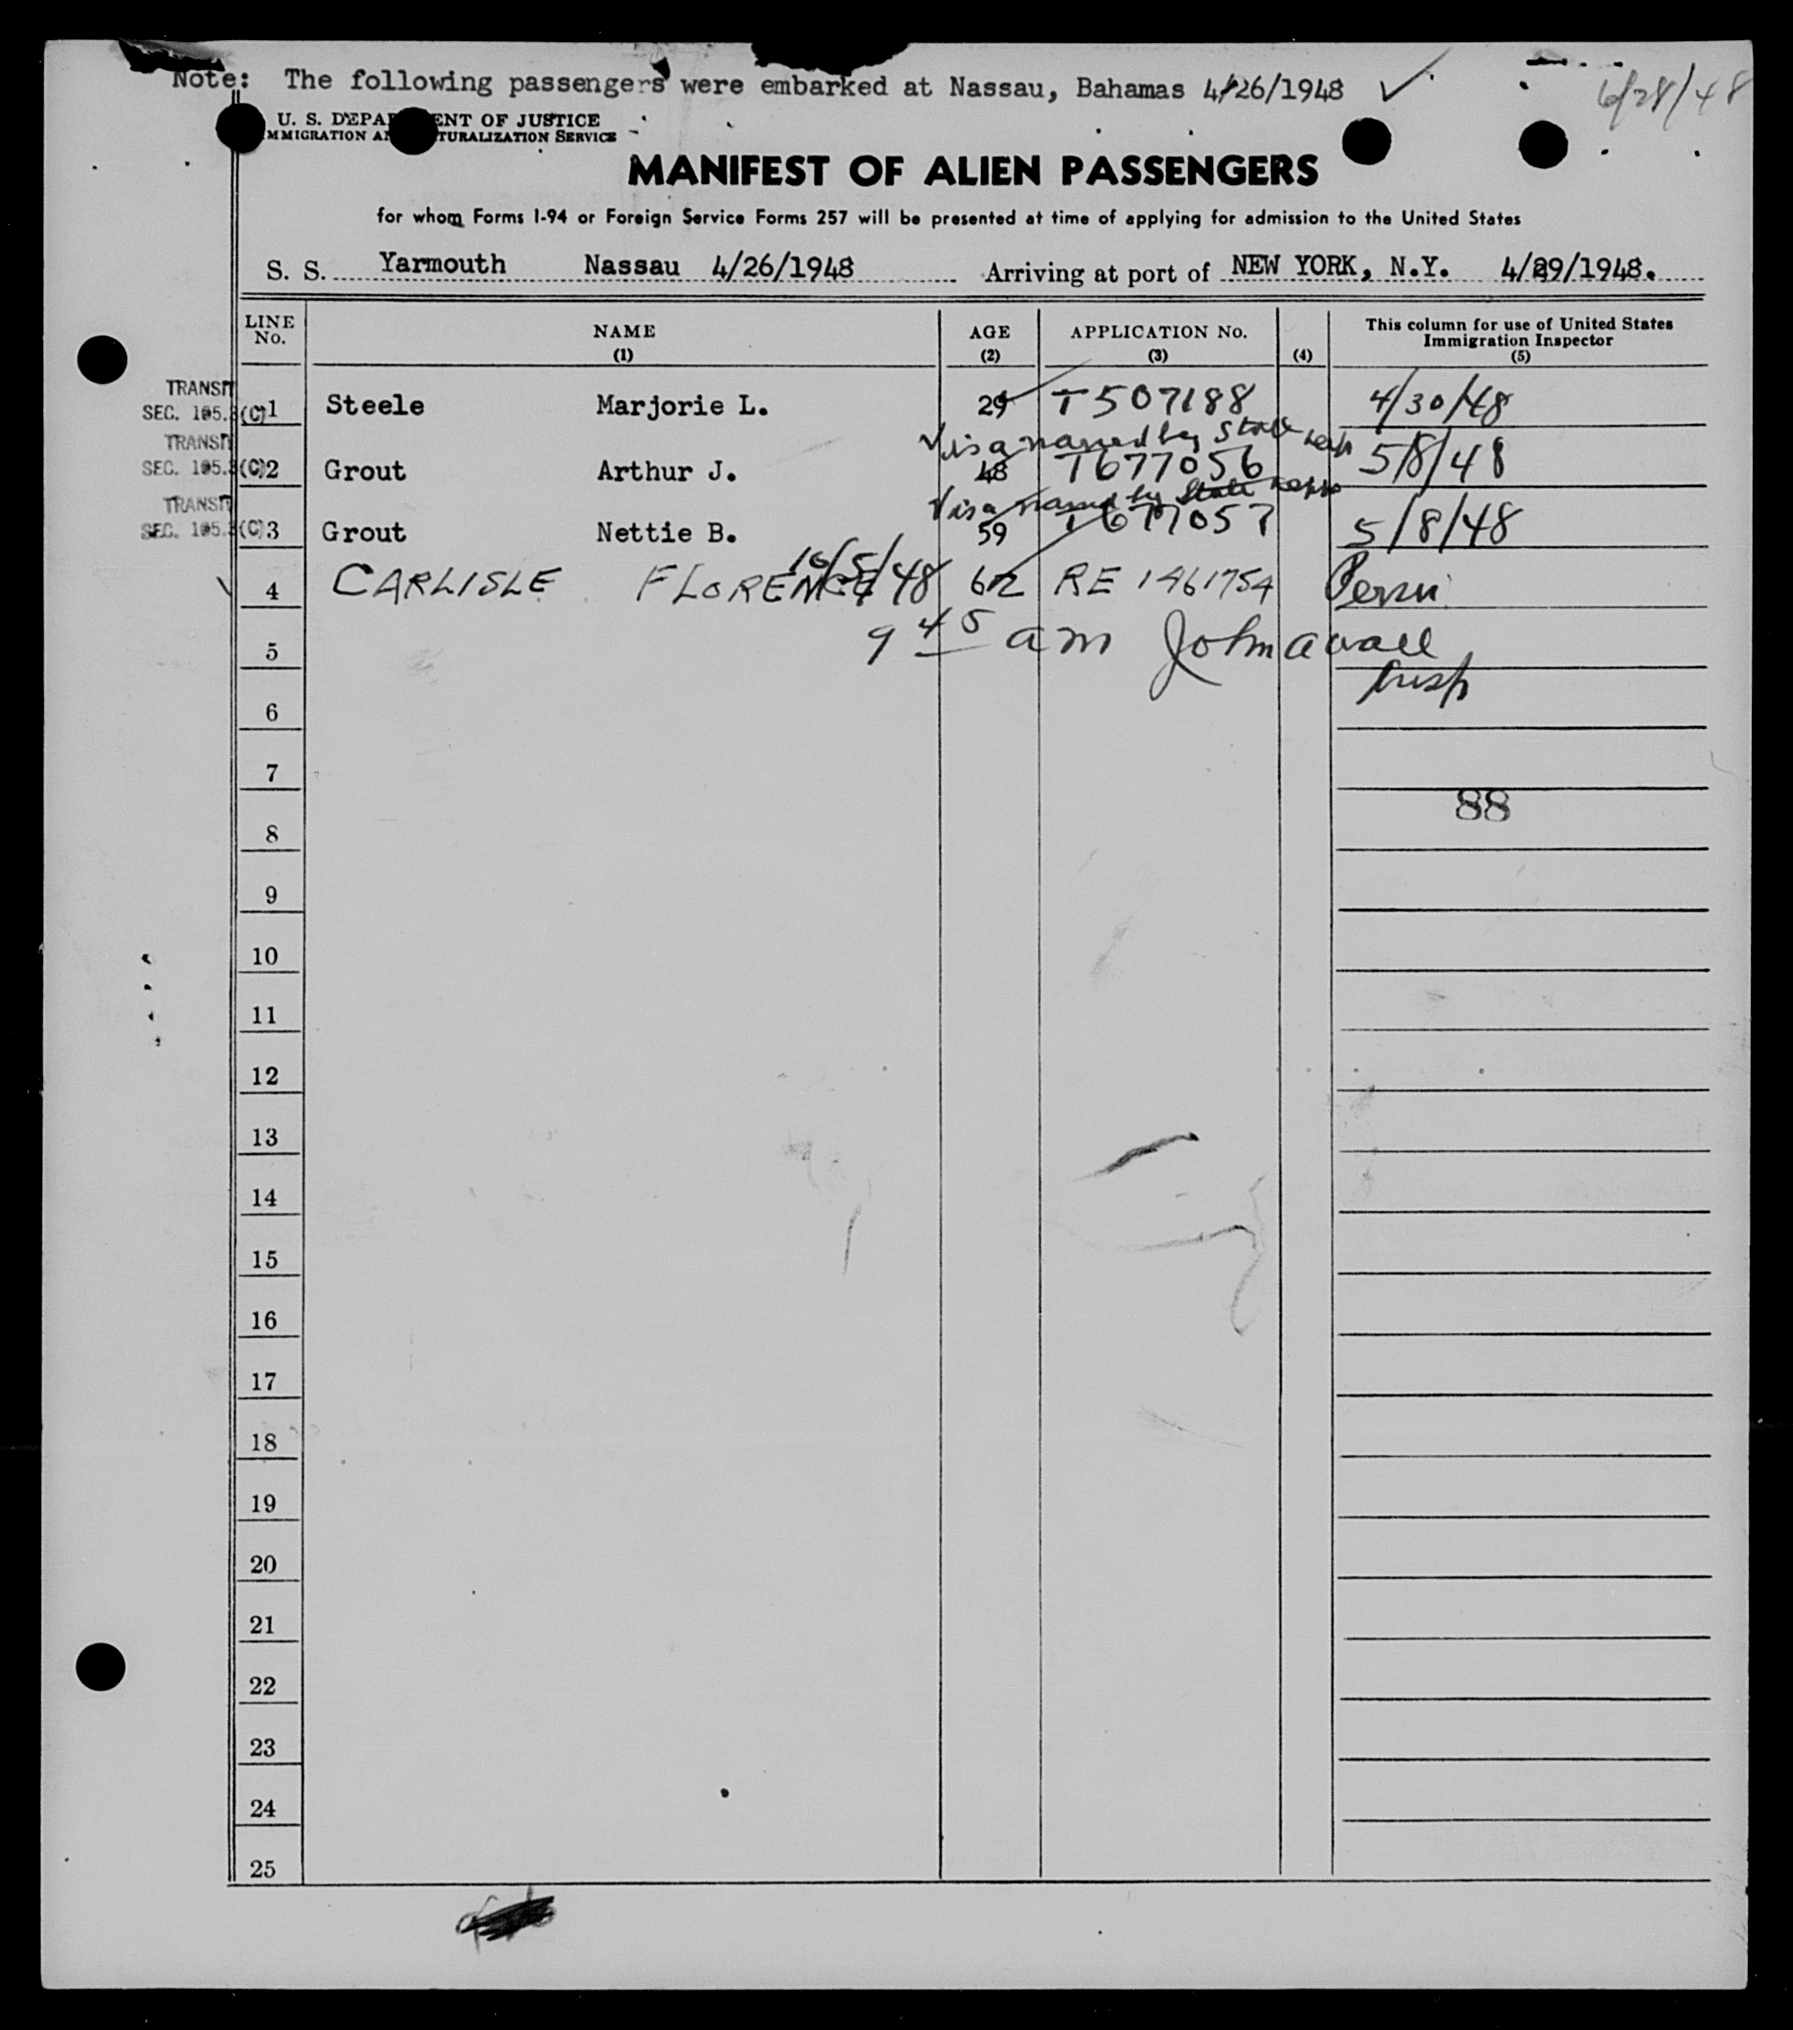 Note: The following passengers were embarked at Nassau, Bahamas 4/26/1948
6/28/48
U. S. DEPA ENT OF JUSTICE
MMIGRATION A TURALIZATION SERVICE
MANIFEST OF ALIEN PASSENGERS
for whom Forms I-94 or Foreign Service Forms 257 will be presented at time of applying for admission to the United States
S. S. Yarmouth Nassau 4/26/1948 Arriving at port of NEW YORK, N.Y. 4/29/1948.
LINE No. NAME (1) AGE (2) APPLICATION No. (3) (4) This column for use of United States Immigration Inspector (5)
TRANSIT
SEC. 105.3(C) 1 Steele Marjorie L. 29 T507188 4/30/48
Visa waived by State
TRANSIT
SEC. 105.3(C) 2 Grout Arthur J. 48 T677056 5/8/48
Visa waived by State
TRANSIT
SEC. 105.3(C) 3 Grout Nettie B. 59 T677057 5/8/48
10/5/48
4 CARLISLE FLORENCE 62 RE 1461754
5 9 45 am John
Insp
6
7
88
8
9
10
11
12
13
14
15
16
17
18
19
20
21
22
23
24
25